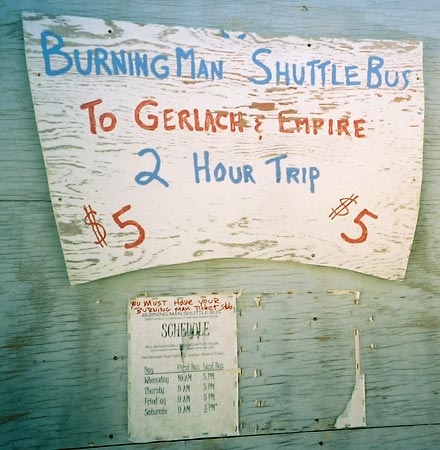 BURNING MAN SHUTTLE BUS
TO GERLACH & EMPIRE
2 HOUR TRIP
$5 $5
YOU MUST HAVE YOUR
BURNING MAN TICKET STUB
BURNING MAN SHUTTLE BUS
SCHEDULE
Day First Bus Last Bus
10 AM 5 PM
9 AM 5 PM
9 AM 5 PM
9 AM